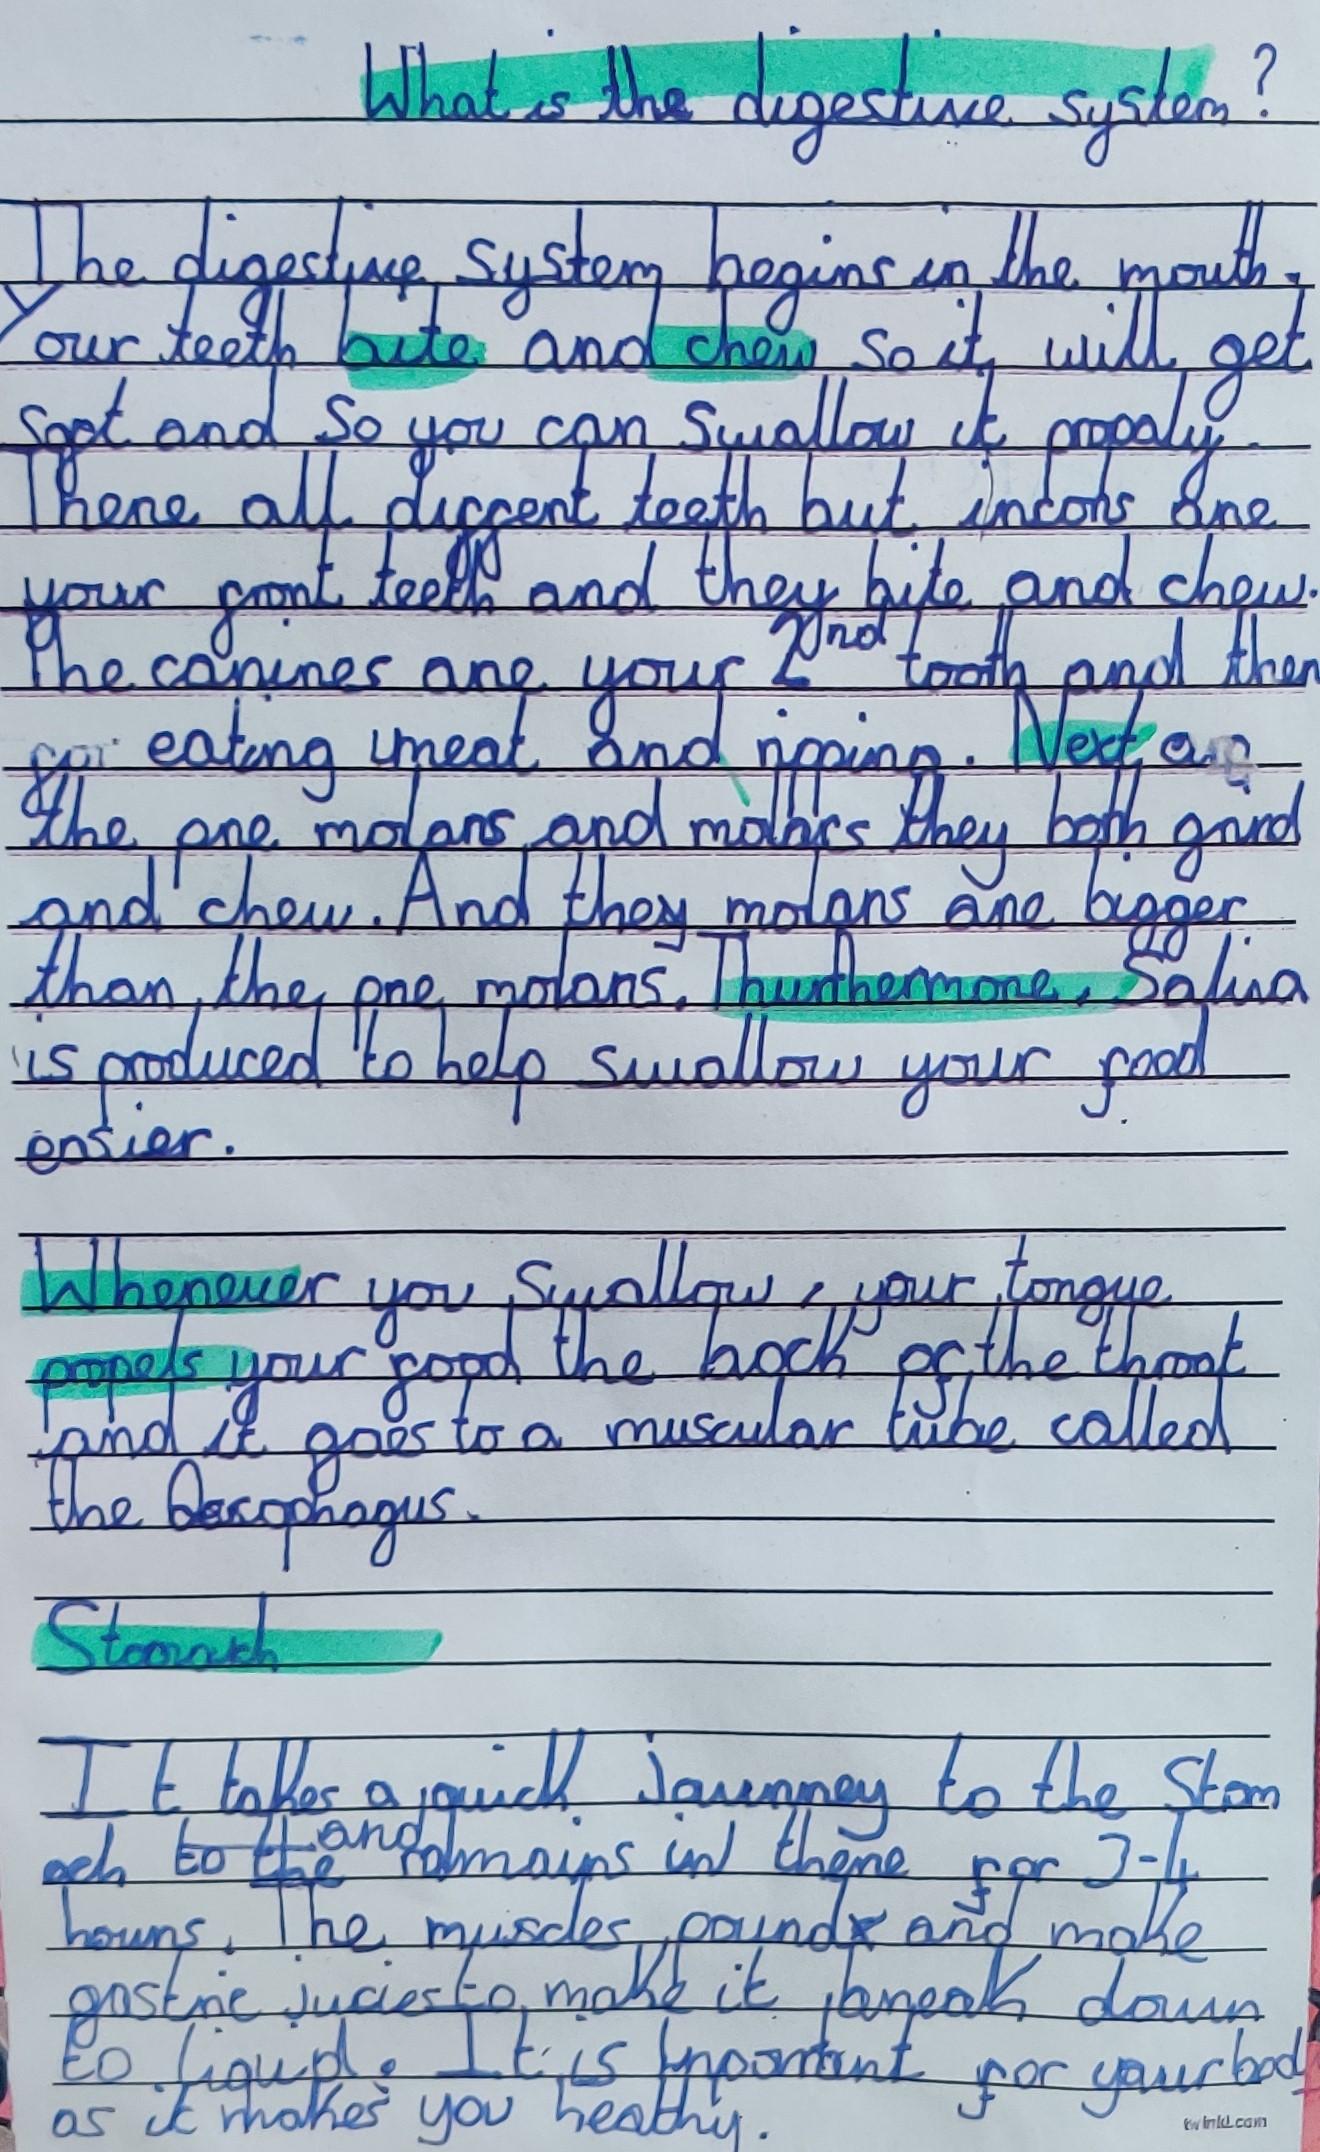 What is the digestive system?
The digestive system begins in the mouth.
Your teeth bite and chew so it will get
soft and so you can swallow it propaly.
There all diffent teeth but incors are
your front teeth and they bite and chew.
The canines are your 2nd tooth and then
for eating meat and ripping. Next are
the pre molars and molars they both grind
and chew. And they molars are bigger
than the pre molars. Thurthermore, Saliva
is produced to help swallow your food
easier.
Whenever you swallow, your tongue
propels your food the back of the throat
and it goes to a muscular tube called
the Oesophagus.
Stomach
It takes a quick Journney to the Stom
ach to the and remains in there for 3-4
hours. The muscles pound and make
gastric jucies to make it break down
to liquid. It is Important for your body
as it makes you healthy.
twinkl.com